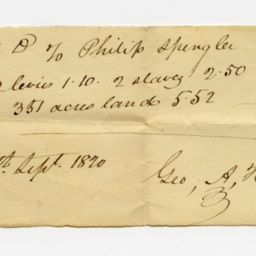 Dr To Philip Spengler
levies 1.10. 2 slaves 2.50
351 acres land 5.52
th Sept. 1820
Geo, A,